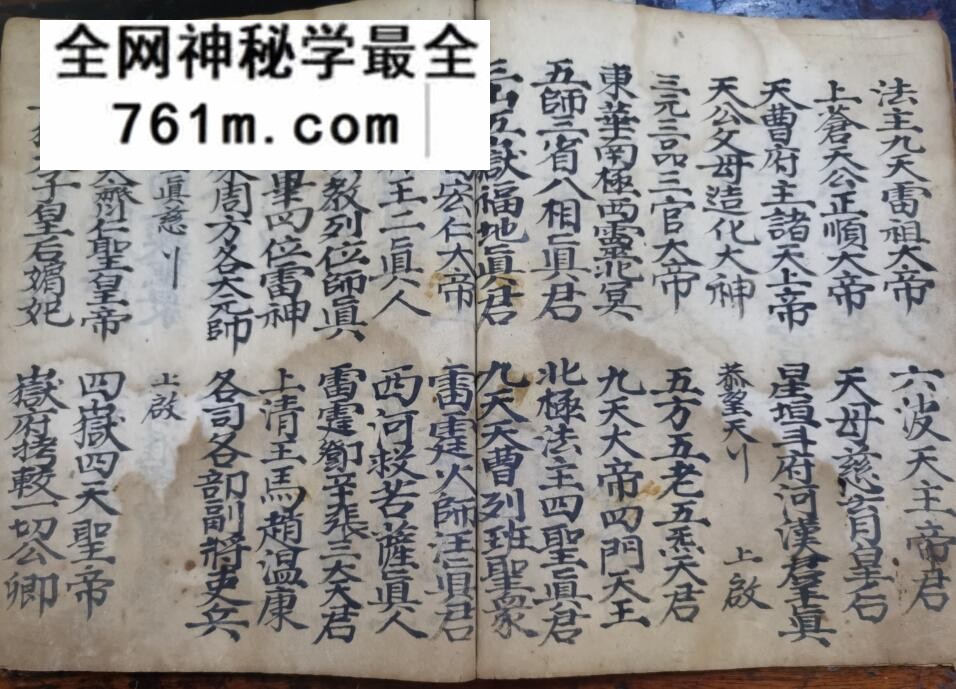 全网神秘学最全
761m.com
法主九天雷祖大帝 六波天主帝君
上蒼天公正順大帝 天母慈育皇后
天曹府主諸天上帝 星垣斗府河漢羣眞
天公父母造化大神 恭望天 上啟
三元三品三官大帝 五方五老五炁天君
東華南極西靈北冥 九天大帝四門天王
五師三省八相眞君 北極法主四聖眞君
三山五嶽福地眞君 九天天曹列班聖衆
宏仁大帝 雷霆火師汪眞君
王二眞人 西河救苦薩眞人
教列位師眞 雷霆鄧辛張三大天君
畢四位雷神 上清王馬趙温康
周方各大元帥 各司各部副將吏兵
眞慈 上啟
齊仁聖皇帝 四嶽四天聖帝
子皇后嬪妃 嶽府拷較一切公卿